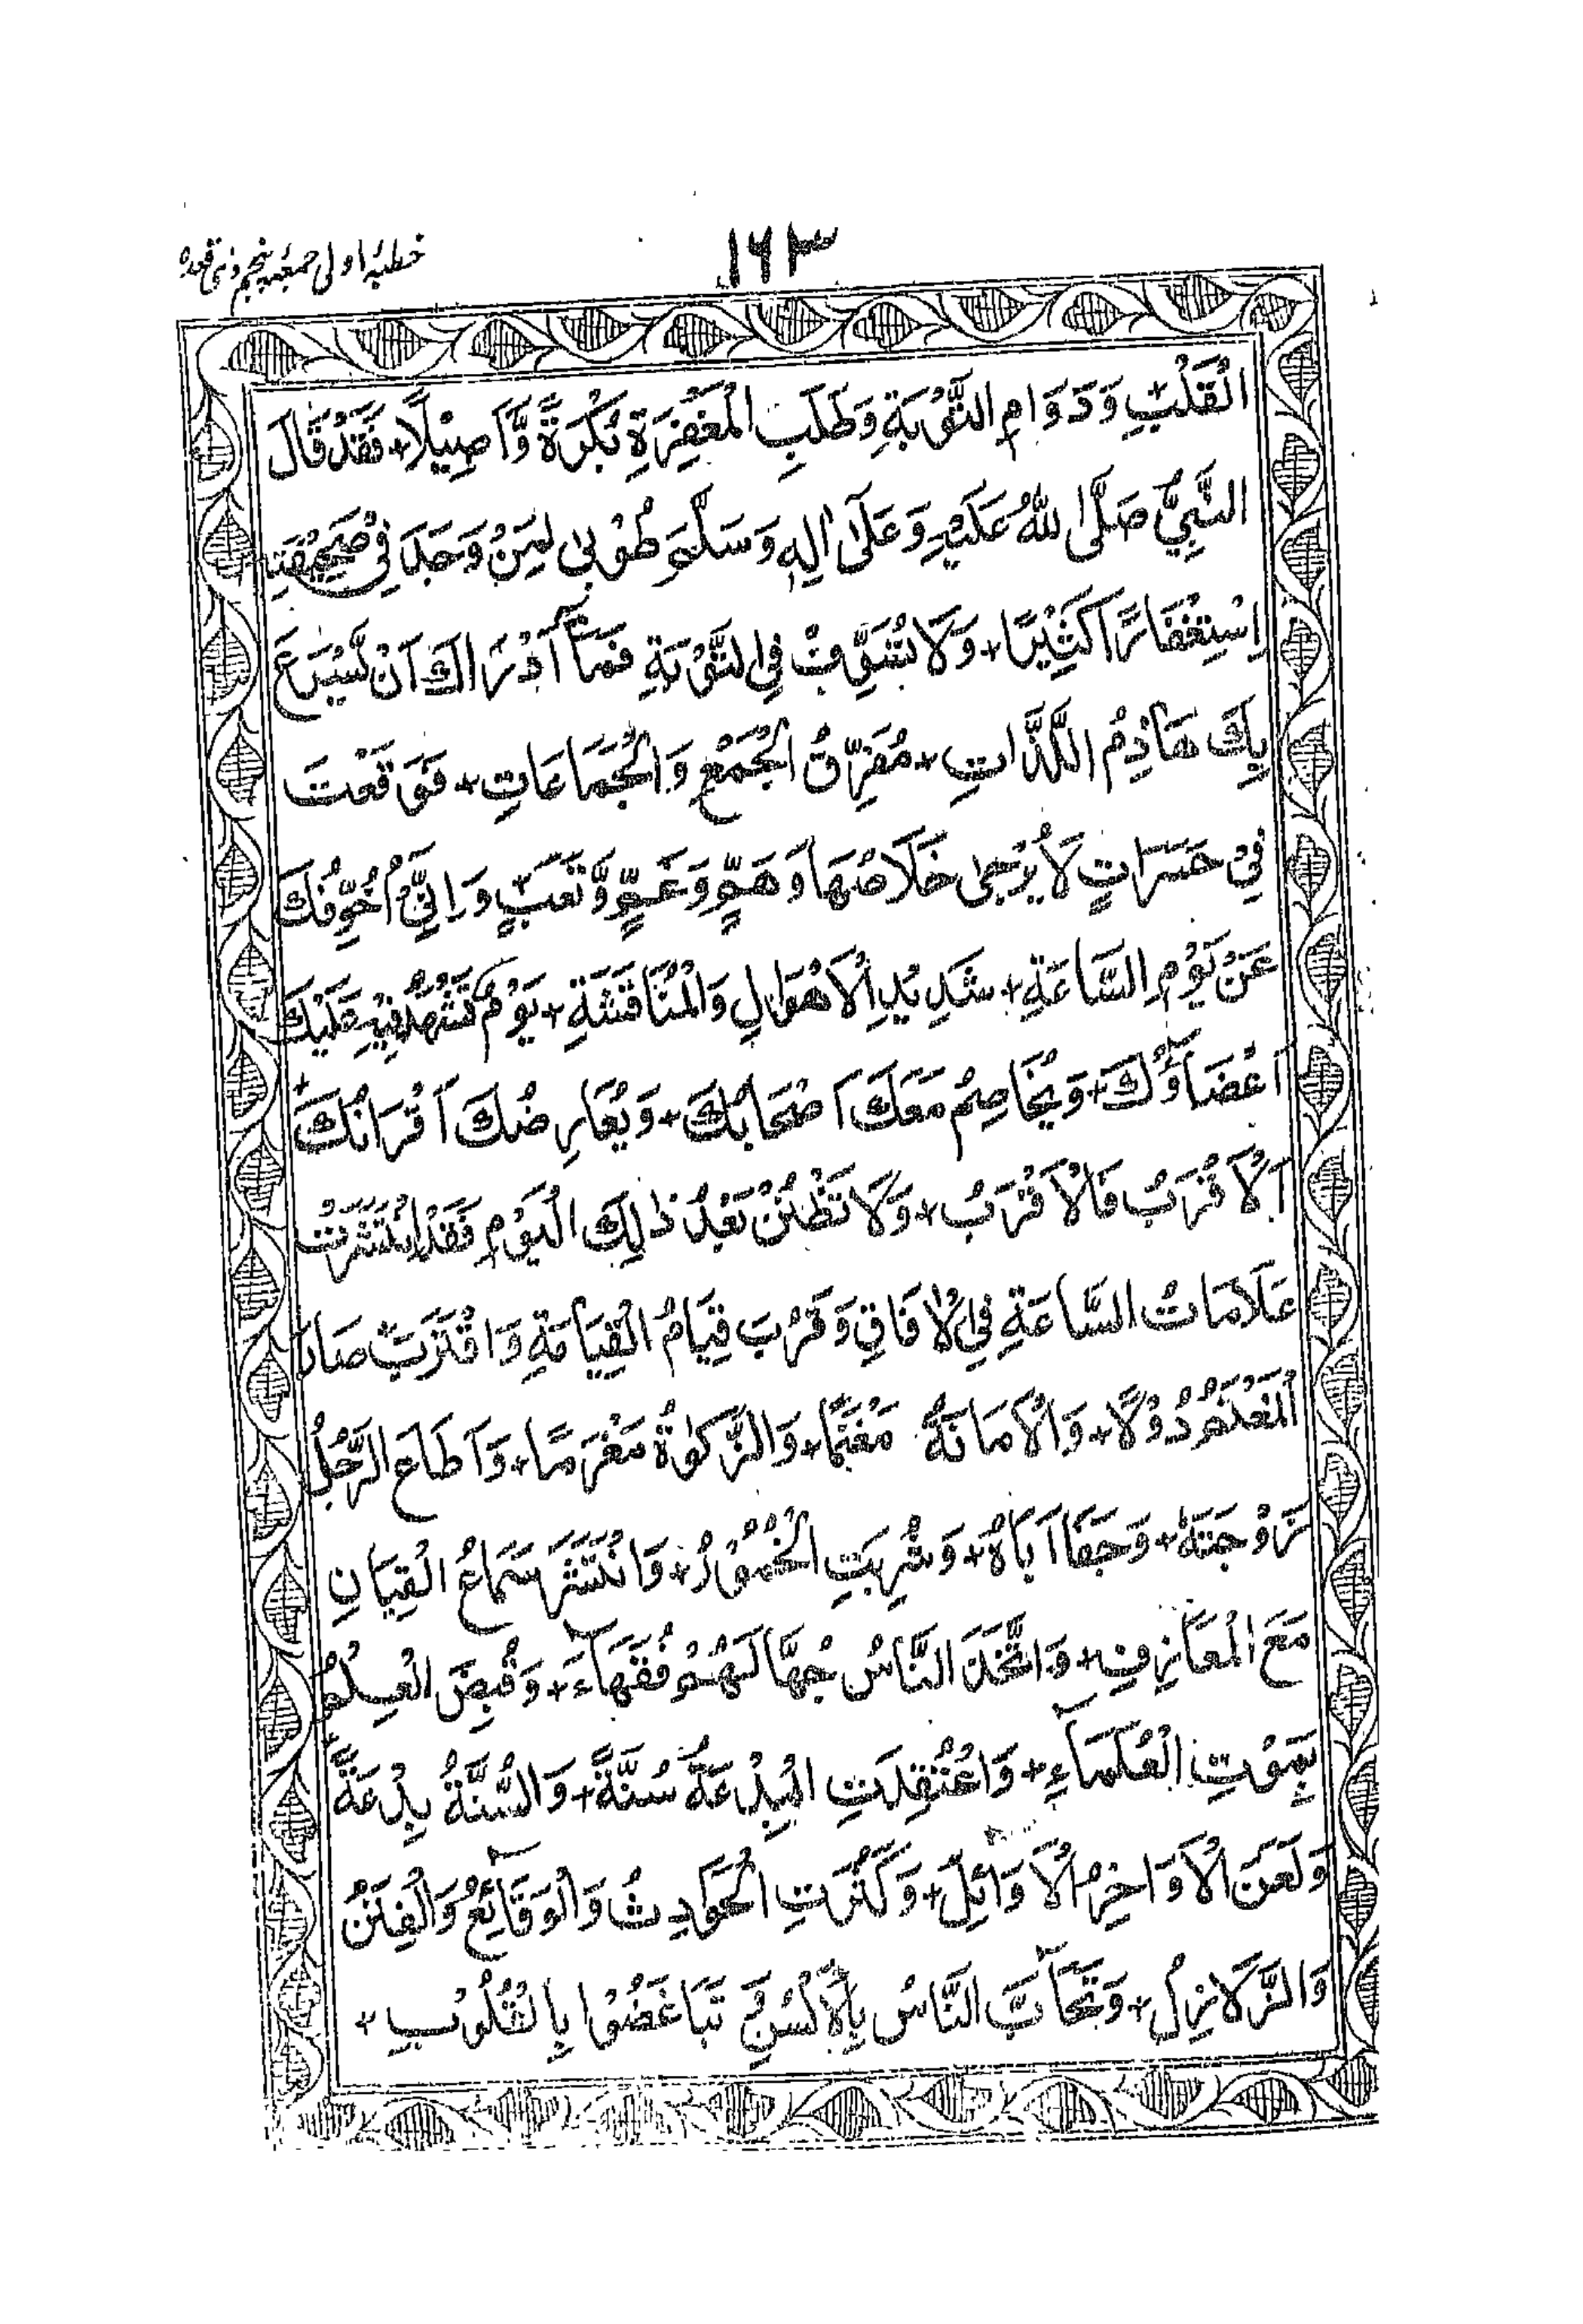 ۱۶۳
خطبۂ اولی جمعۂ پنجم ذی قعدہ
الْقَلْبِ وَدَوَامِ التَّوْبَةِ وَطَلَبِ الْمَغْفِرَةِ بُكْرَةً وَّاَصِيْلًا + فَقَدْ قَالَ
النَّبِيُّ صَلَّى اللّٰهُ عَلَيْهِ وَعَلٰى اٰلِهٖ وَسَلَّمَ طُوْبٰى لِمَنْ وَجَدَ فِيْ صَحِيْفَتِهٖ
اِسْتِغْفَارًا كَثِيْرًا + وَلَا تُسَوِّفْ فِي التَّوْبَةِ فَمَآ اَدْرَاكَ اَنْ يُّسْرِعَ
بِكَ هَاذِمُ اللَّذَّاتِ + مُفَرِّقُ الْجَمْعِ وَالْجَمَاعَاتِ + فَوَقَعْتَ
فِيْ حَسَرَاتٍ لَا يُرْجٰى خَلَاصُهَا وَهَمٍّ وَغَمٍّ وَّتَعَبٍ وَاِنِّيْٓ اُخَوِّفُكَ
عَنْ يَوْمِ السَّاعَةِ + شَدِيْدِ الْاَهْوَالِ وَالْمُنَاقَشَةِ + يَوْمٌ تَشْهَدُ فِيْهِ عَلَيْكَ
اَعْضَآؤُكَ + وَيُخَاصِمُ مَعَكَ اَصْحَابُكَ + وَيُعَارِضُكَ اَقْرَانُكَ +
اَلْاَقْرَبُ فَالْاَقْرَبُ + وَلَا تَظُنَّنَّ بَعْدَ ذٰلِكَ الْيَوْمِ فَقَدِ انْتَشَرَتْ
عَلَامَاتُ السَّاعَةِ فِي الْاٰفَاقِ وَقَرُبَ قِيَامُ الْقِيَامَةِ وَاقْتَرَبَتْ صَارَ
الْمَغْنَمُ دُوَلًا + وَالْاَمَانَةُ مَغْنَمًا + وَالزَّكٰوةُ مَغْرَمًا + وَاَطَاعَ الرَّجُلُ
زَوْجَتَهٗ + وَجَفَا اَبَاهُ + وَشُرِبَتِ الْخُمُوْرُ + وَانْتَشَرَ سَمَاعُ الْقِيَانِ
مَعَ الْمَعَازِفِ + وَاتَّخَذَ النَّاسُ جُهَّالَهُمْ فُقَهَآءَ + وَقُبِضَ الْعِلْمُ
بِمَوْتِ الْعُلَمَآءِ + وَاعْتُقِدَتِ الْبِدْعَةُ سُنَّةً + وَالسُّنَّةُ بِدْعَةً +
وَلَعَنَ الْاَوَاخِرُ الْاَوَآئِلَ + وَكَثُرَتِ الْحَوَادِثُ وَالْوَقَآئِعُ وَالْفِتَنُ
وَالزَّلَازِلُ + وَتَحَآبَّ النَّاسُ بِالْاَلْسُنِ وَ تَبَاغَضُوْا بِالْقُلُوْبِ +